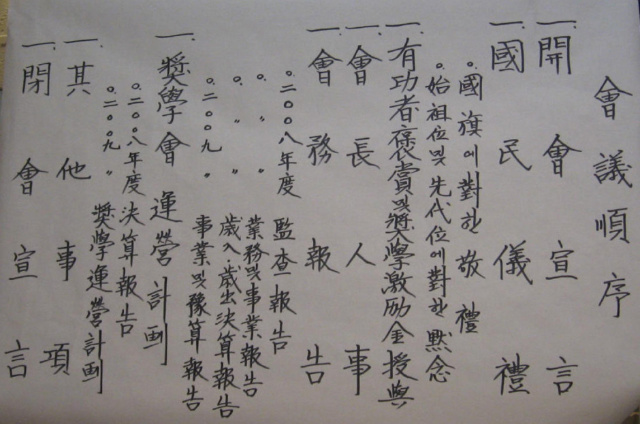 會議順序
一. 開會宣言
一. 國民儀禮
○. 國旗에 對한 敬禮
○. 始祖位 및 先代位에 對한 默念
一. 有功者褒賞 및 奬學激励金授與
一. 會長人事
一. 會務報告
○. 二○○八年度 監査報告
○. 〃 〃 業務 및 事業報告
○. 〃 〃 歲入·歲出決算報告
○. 二○○九 〃 事業 및 豫算報告
一. 奬學會運營計画
○. 二○○八年度 決算報告
○. 二○○九 〃 奬學運營計画
一. 其他事項
一. 閉會宣言